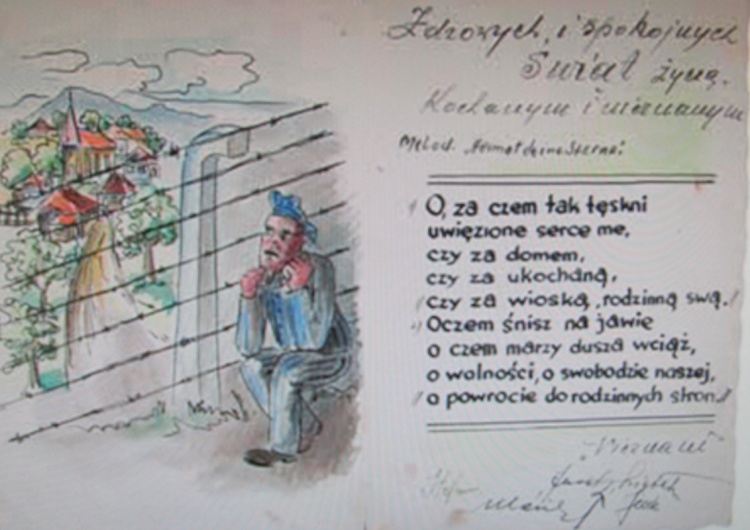 Zdrowych, i spokojnych
Świąt życzą.
Kochanym i nieznanym
Melod. "Heimat deine Sterne"
O, za czem tak tęskni
uwięzione serce me,
czy za domem,
czy za ukochaną,
/ czy za wioską, rodzinną swą. /
/ Oczem śnisz na jawie
o czem marzy dusza wciąż,
o wolności, o swobodzie naszej,
/ o powrocie do rodzinnych stron. /
Stefan